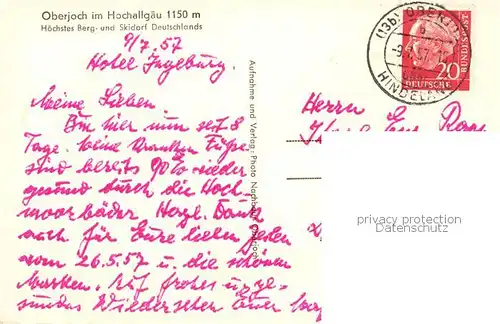 Oberjoch im Hochallgäu 1150 m
Höchstes Berg- und Skidorf Deutschlands
9/7.57
Hotel Ingeburg.
Meine Lieben.
Bin hier nun seit 8
Tage. Meine kranken Füße
sind bereits 90% wieder
gesund durch die Hoch-
moorbäder Herzl. Dank
noch für Eure lieben Zeilen
vom 26.5.57 u. die schönen
Marken. Auf frohes u. ge-
sundes Wiedersehen Euer
Aufnahme und Verlag: Photo
HINDELAN
DEUTSCHE
BUNDESPOST
20
Herrn
privacy protection
Datenschutz